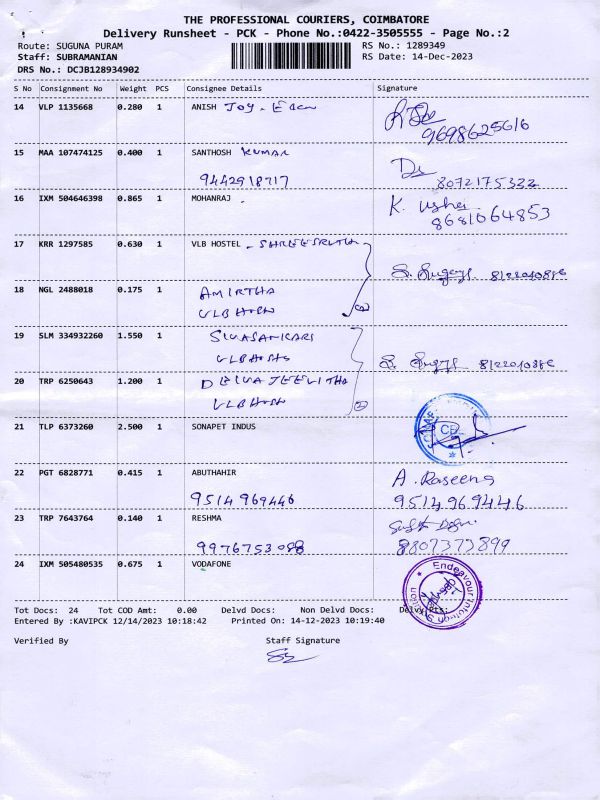 THE PROFESSIONAL COURIERS, COIMBATORE
Delivery Runsheet - PCK - Phone No.:0422-3505555 - Page No.:2
Route: SUGUNA PURAM RS No.: 1289349
Staff: SUBRAMANIAN RS Date: 14-Dec-2023
DRS No.: DCJB128934902
S No Consignment No Weight PCS Consignee Details Signature
14 VLP 1135668 0.280 1 ANISH JOY.
9698625616
15 MAA 107474125 0.400 1 SANTHOSH KUMAR
9442918717 8072175332
16 IXM 504646398 0.865 1 MOHANRAJ. K. Usha
8681064853
17 KRR 1297585 0.630 1 VLB HOSTEL - SHREESRUTHA
18 NGL 2488018 0.175 1 AMIRTHA
VLB
19 SLM 334932260 1.550 1 SIVASANKARI
VLB
20 TRP 6250643 1.200 1 DEIVA JEEVITHA
VLB
21 TLP 6373260 2.500 1 SONAPET INDUS
22 PGT 6828771 0.415 1 ABUTHAHIR A. Raseena
9514969446 9514969446
23 TRP 7643764 0.140 1 RESHMA
9976753088 8807373899
24 IXM 505480535 0.675 1 VODAFONE
Endeavour
Tot Docs: 24 Tot COD Amt: 0.00 Delvd Docs: Non Delvd Docs: Delvy Pts:
Entered By :KAVIPCK 12/14/2023 10:18:42 Printed On: 14-12-2023 10:19:40
Verified By Staff Signature